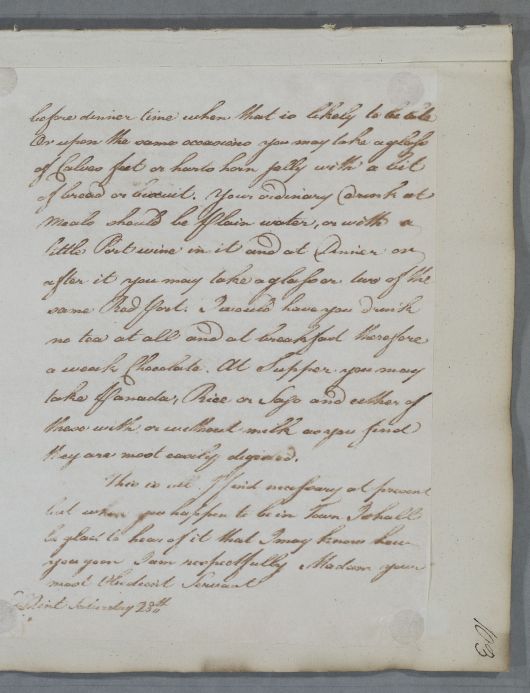 before dinner time when that is likely to be late
Or upon the same occasions you may take a glass
of Calves feet or hartshorn jelly with a bit
of bread or biscuit. Your ordinary Drink at
Meals should be Plain water, or with a
little Port wine in it and at Dinner or
after it you may take a glass or two of the
same Red Port. I would have you drink
no tea at all and at breakfast therefore
a weak Chocolate. At Supper you may
take Panada, Rice or Sago and either of
these with or without milk as you find
they are most easily digested.
This is all I find necessary at present
but when you happen to be in Town I shall
be glad to hear of it that I may know how
you are I am respectfully Madam your
most Obedient Servant
Saturday 28th
163